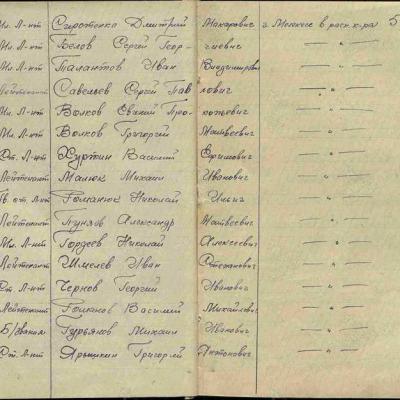 Мл. Л-нт Сиротенко Дмитрий Макарович г. Мелекесс в расп. к-ра 5
Мл. Л-нт Белов Сергей Геор- гиевич — " —
Мл. Л-нт Талантов Иван Владимирович — " —
Лейтенант Савельев Сергей Пав лович — " —
Мл. Л-нт Волков Евгений Про- копьевич — " —
Мл. Л-нт Волков Григорий Матвеевич — " —
Ст. Л-нт Хуртин Василий Ефимович — " —
Лейтенант Малюк Михаил Иванович — " —
Гв. ст. Л-нт Романюк Николай Ильич — " —
Лейтенант Пуняев Александр Матвеевич — " —
Мл. Л-нт Гордеев Николай Алексеевич — " —
Лейтенант Шмелев Иван Степанович — " —
Ст. Л-нт Чернов Георгий Иванович — " —
Лейтенант Василий Михайлович — " —
Б/звания Гурьянов Михаил Иванович — " —
Ст. Л-нт Ярышкин Григорий Антонович — " —